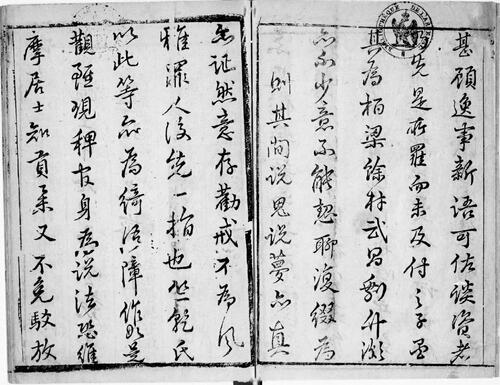 甚顧逸事新語可佐談資者
先是所羅而未及付之于墨
其為柏梁餘材武昌剩竹頗
亦不少意不能恝聊復綴為
則其間說鬼說夢亦真
亦誕然意存勸戒不為風
雅罪人後先一指也竺乾氏
以此等亦為綺語障作如是
觀雖現稗官身為說法恐維
摩居士知貢舉又不免駁放